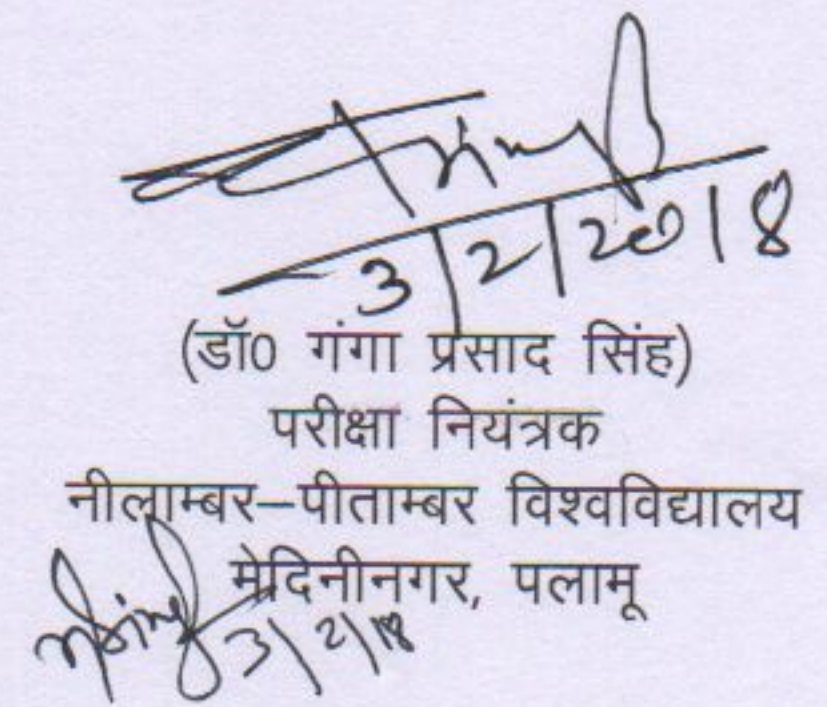 3/2/2018
(डॉ0 गंगा प्रसाद सिंह)
परीक्षा नियंत्रक
नीलाम्बर–पीताम्बर विश्वविद्यालय
मेदिनीनगर, पलामू
3/2/18